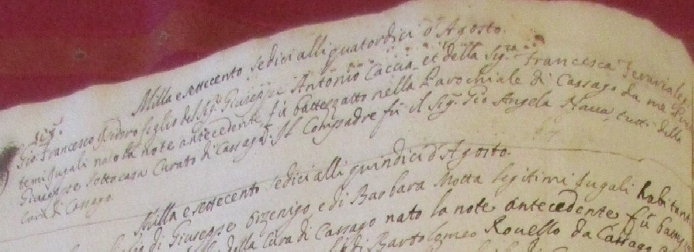 Milla e settecento sedici alli quatordici d'Agosto.
Gio. Francesco Andero figlio del Sig.r Giuseppe Antonio Caccia et della Sig.ra Francesca
temi Jugali nato la note antecedente fù battezzatto nella Parochiale di Cassago da me
Giuseppe Sottocasa Curato di Cassago. Il Compadre fù il Sig.r Gio Angelo Nava, tutti della
Cura di Cassago.
Milla e settecento sedici alli quindici d'Agosto.
di Giuseppe Orzenigo e di Barbara Motta legitimi Jugali habitanti
della Cura di Cassago nato la note antecedente fù
di Bartolomeo Rouello da Cassago